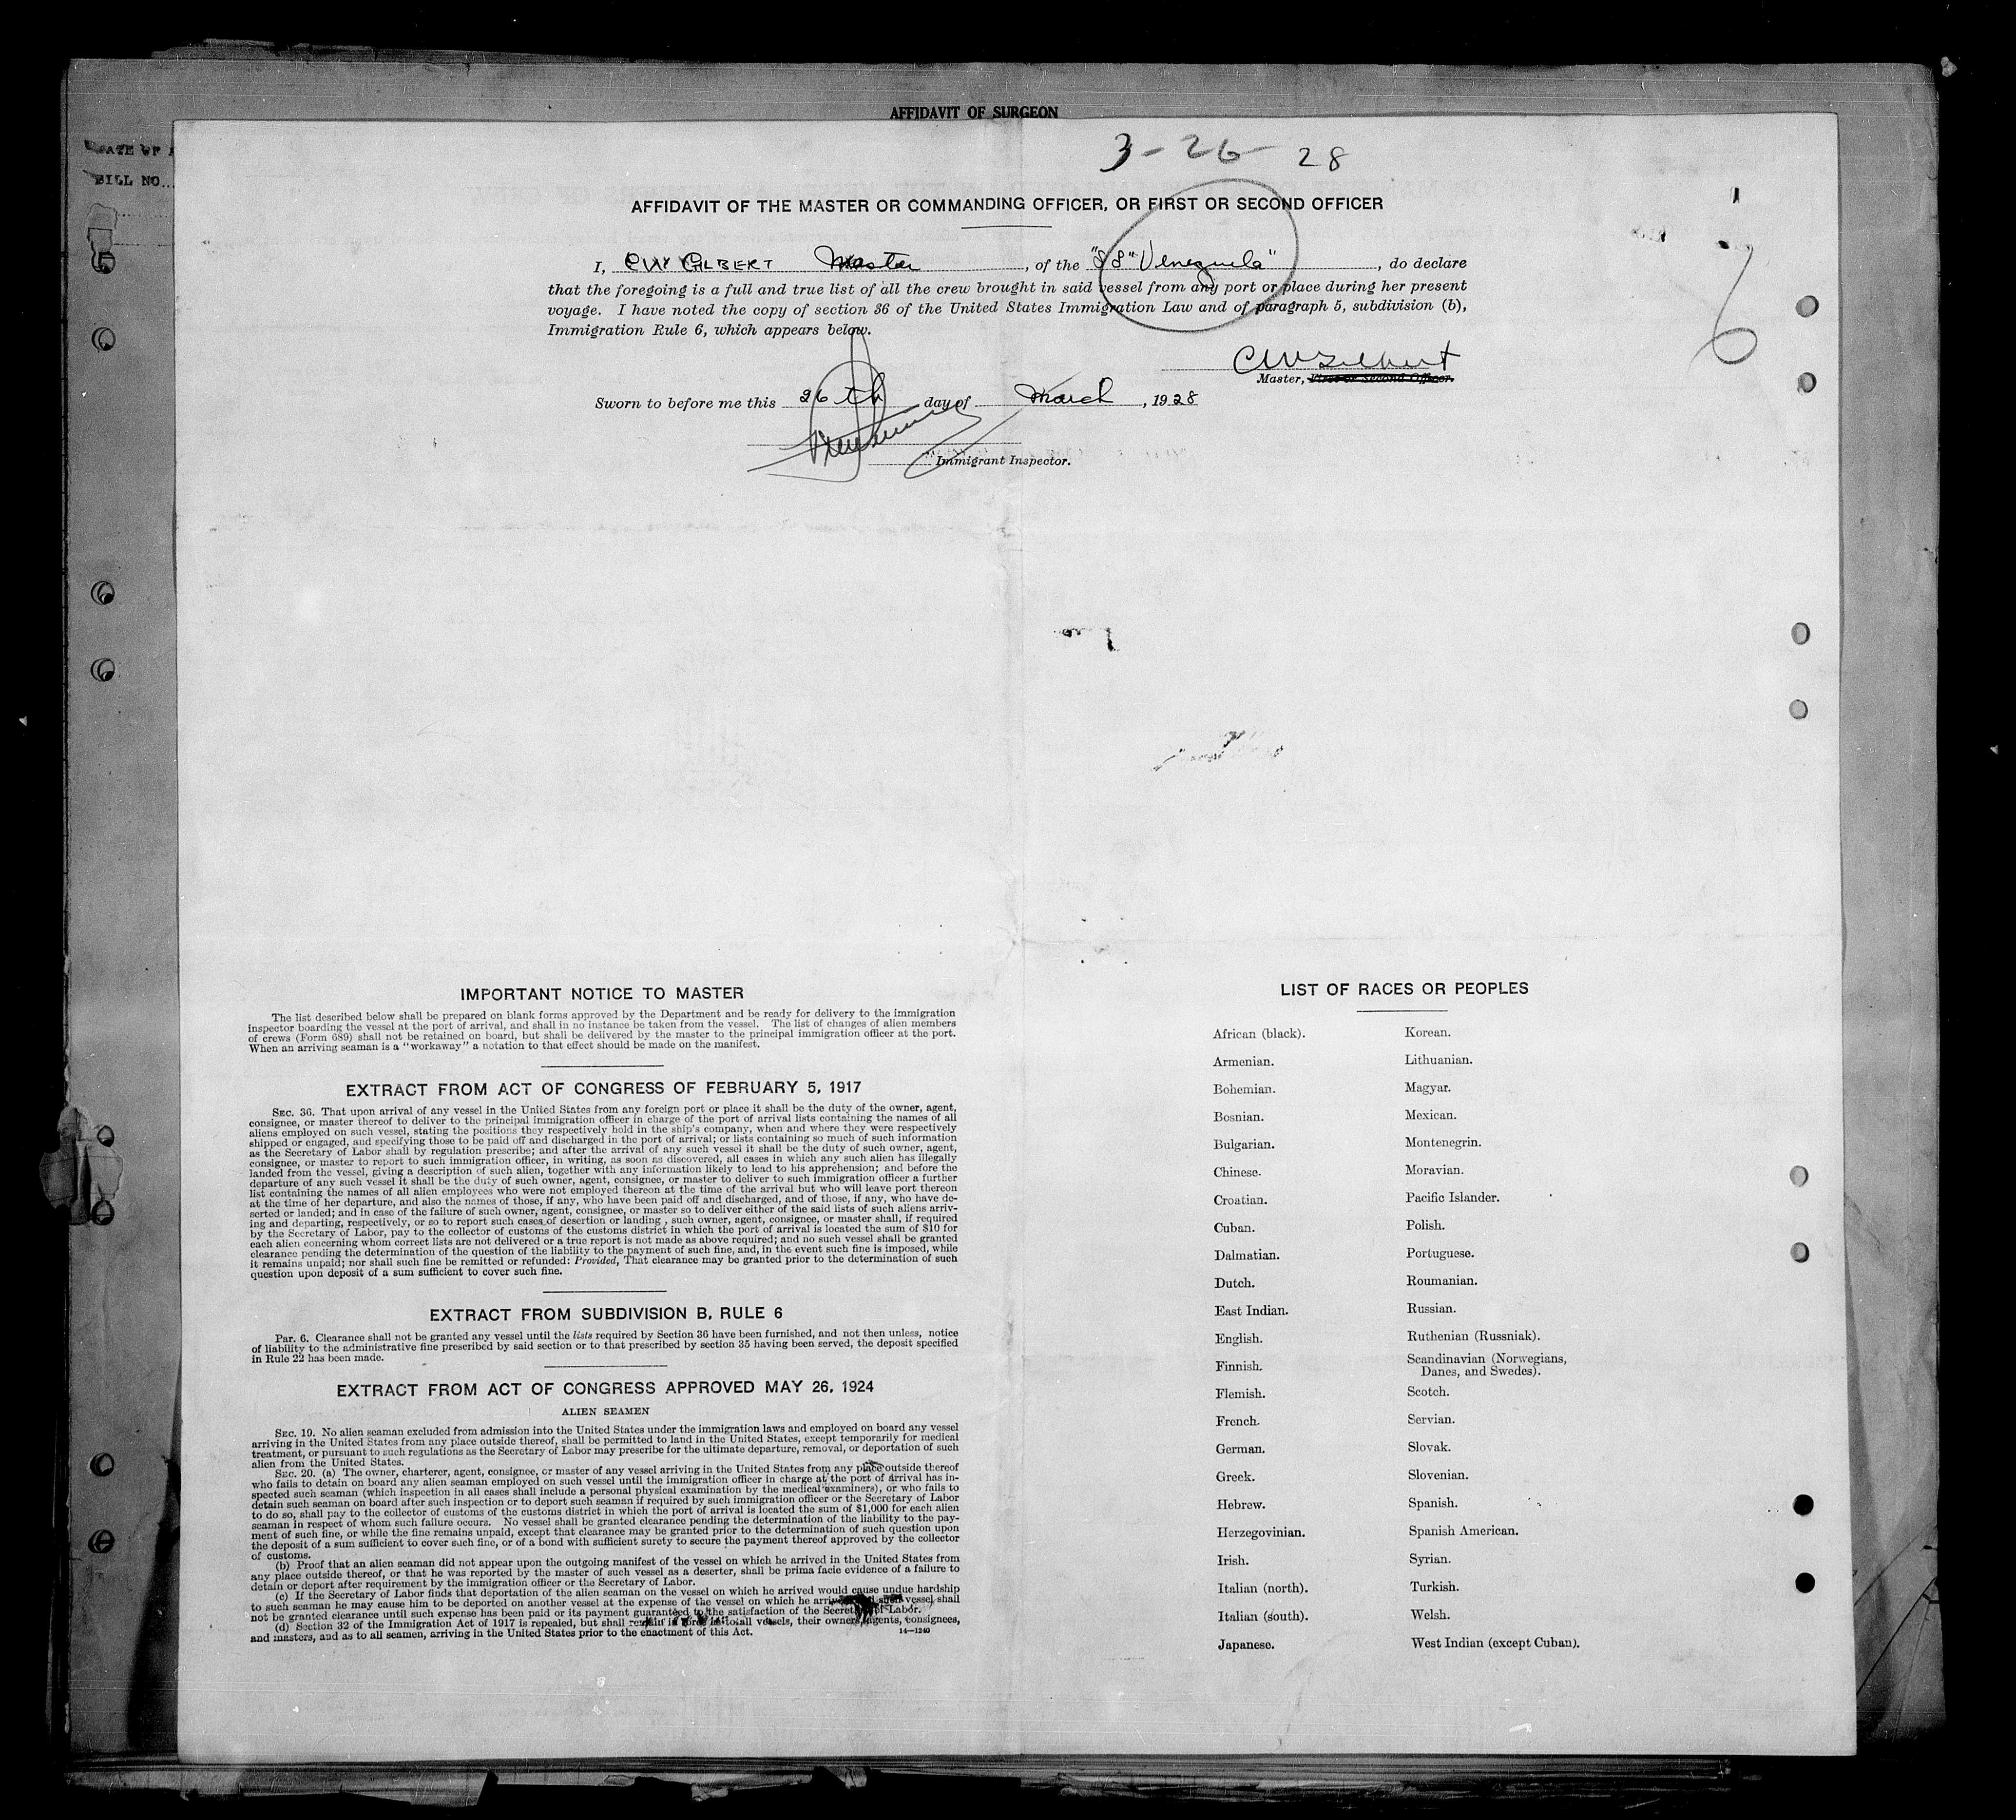 AFFIDAVIT OF SURGEON
BILL NO...
3-26-28
AFFIDAVIT OF THE MASTER OR COMMANDING OFFICER, OR FIRST OR SECOND OFFICER
I, CW GILBERT Master, of the "SS" Venezuela", do declare
that the foregoing is a full and true list of all the crew brought in said vessel from any port or place during her present
voyage. I have noted the copy of section 36 of the United States Immigration Law and of paragraph 5, subdivision (b),
Immigration Rule 6, which appears below.
CW Gilbert
Master, First or Second Officer.
Sworn to before me this 26th day of March, 1928
Immigrant Inspector.
IMPORTANT NOTICE TO MASTER
The list described below shall be prepared on blank forms approved by the Department and be ready for delivery to the immigration
inspector boarding the vessel at the port of arrival, and shall in no instance be taken from the vessel. The list of changes of alien members
of crews (Form 689) shall not be retained on board, but shall be delivered by the master to the principal immigration officer at the port.
When an arriving seaman is a "workaway" a notation to that effect should be made on the manifest.
EXTRACT FROM ACT OF CONGRESS OF FEBRUARY 5, 1917
SEC. 36. That upon arrival of any vessel in the United States from any foreign port or place it shall be the duty of the owner, agent,
consignee, or master thereof to deliver to the principal immigration officer in charge of the port of arrival lists containing the names of all
aliens employed on such vessel, stating the positions they respectively hold in the ship's company, when and where they were respectively
shipped or engaged, and specifying those to be paid off and discharged in the port of arrival; or lists containing so much of such information
as the Secretary of Labor shall by regulation prescribe; and after the arrival of any such vessel it shall be the duty of such owner, agent,
consignee, or master to report to such immigration officer, in writing, as soon as discovered, all cases in which any such alien has illegally
landed from the vessel, giving a description of such alien, together with any information likely to lead to his apprehension; and before the
departure of any such vessel it shall be the duty of such owner, agent, consignee, or master to deliver to such immigration officer a further
list containing the names of all alien employees who were not employed thereon at the time of the arrival but who will leave port thereon
at the time of her departure, and also the names of those, if any, who have been paid off and discharged, and of those, if any, who have de-
serted or landed; and in case of the failure of such owner, agent, consignee, or master so to deliver either of the said lists of such aliens arriv-
ing and departing, respectively, or so to report such cases of desertion or landing , such owner, agent, consignee, or master shall, if required
by the Secretary of Labor, pay to the collector of customs of the customs district in which the port of arrival is located the sum of $10 for
each alien concerning whom correct lists are not delivered or a true report is not made as above required; and no such vessel shall be granted
clearance pending the determination of the question of the liability to the payment of such fine, and, in the event such fine is imposed, while
it remains unpaid; nor shall such fine be remitted or refunded: Provided, That clearance may be granted prior to the determination of such
question upon deposit of a sum sufficient to cover such fine.
EXTRACT FROM SUBDIVISION B, RULE 6
Par. 6. Clearance shall not be granted any vessel until the lists required by Section 36 have been furnished, and not then unless, notice
of liability to the administrative fine prescribed by said section or to that prescribed by section 35 having been served, the deposit specified
in Rule 22 has been made.
EXTRACT FROM ACT OF CONGRESS APPROVED MAY 26, 1924
ALIEN SEAMEN
SEC. 19. No alien seaman excluded from admission into the United States under the immigration laws and employed on board any vessel
arriving in the United States from any place outside thereof, shall be permitted to land in the United States, except temporarily for medical
treatment, or pursuant to such regulations as the Secretary of Labor may prescribe for the ultimate departure, removal, or deportation of such
alien from the United States.
SEC. 20. (a) The owner, charterer, agent, consignee, or master of any vessel arriving in the United States from any place outside thereof
who fails to detain on board any alien seaman employed on such vessel until the immigration officer in charge at the port of arrival has in-
spected such seaman (which inspection in all cases shall include a personal physical examination by the medical examiners), or who fails to
detain such seaman on board after such inspection or to deport such seaman if required by such immigration officer or the Secretary of Labor
to do so, shall pay to the collector of customs of the customs district in which the port of arrival is located the sum of $1,000 for each alien
seaman in respect of whom such failure occurs. No vessel shall be granted clearance pending the determination of the liability to the pay-
ment of such fine, or while the fine remains unpaid, except that clearance may be granted prior to the determination of such question upon
the deposit of a sum sufficient to cover such fine, or of a bond with sufficient surety to secure the payment thereof approved by the collector
of customs.
(b) Proof that an alien seaman did not appear upon the outgoing manifest of the vessel on which he arrived in the United States from
any place outside thereof, or that he was reported by the master of such vessel as a deserter, shall be prima facie evidence of a failure to
detain or deport after requirement by the immigration officer or the Secretary of Labor.
(c) If the Secretary of Labor finds that deportation of the alien seaman on the vessel on which he arrived would cause undue hardship
to such seaman he may cause him to be deported on another vessel at the expense of the vessel on which he arrived such vessel shall
not be granted clearance until such expense has been paid or its payment guaranteed to the satisfaction of the Secretary of Labor.
(d) Section 32 of the Immigration Act of 1917 is repealed, but shall remain in force as to all vessels, their owners, agents, consignees,
and masters, and as to all seamen, arriving in the United States prior to the enactment of this Act.
14—1240
LIST OF RACES OR PEOPLES
African (black).
Armenian.
Bohemian.
Bosnian.
Bulgarian.
Chinese.
Croatian.
Cuban.
Dalmatian.
Dutch.
East Indian.
English.
Finnish.
Flemish.
French.
German.
Greek.
Hebrew.
Herzegovinian.
Irish.
Italian (north).
Italian (south).
Japanese.
Korean.
Lithuanian.
Magyar.
Mexican.
Montenegrin.
Moravian.
Pacific Islander.
Polish.
Portuguese.
Roumanian.
Russian.
Ruthenian (Russniak).
Scandinavian (Norwegians,
Danes, and Swedes).
Scotch.
Servian.
Slovak.
Slovenian.
Spanish.
Spanish American.
Syrian.
Turkish.
Welsh.
West Indian (except Cuban).